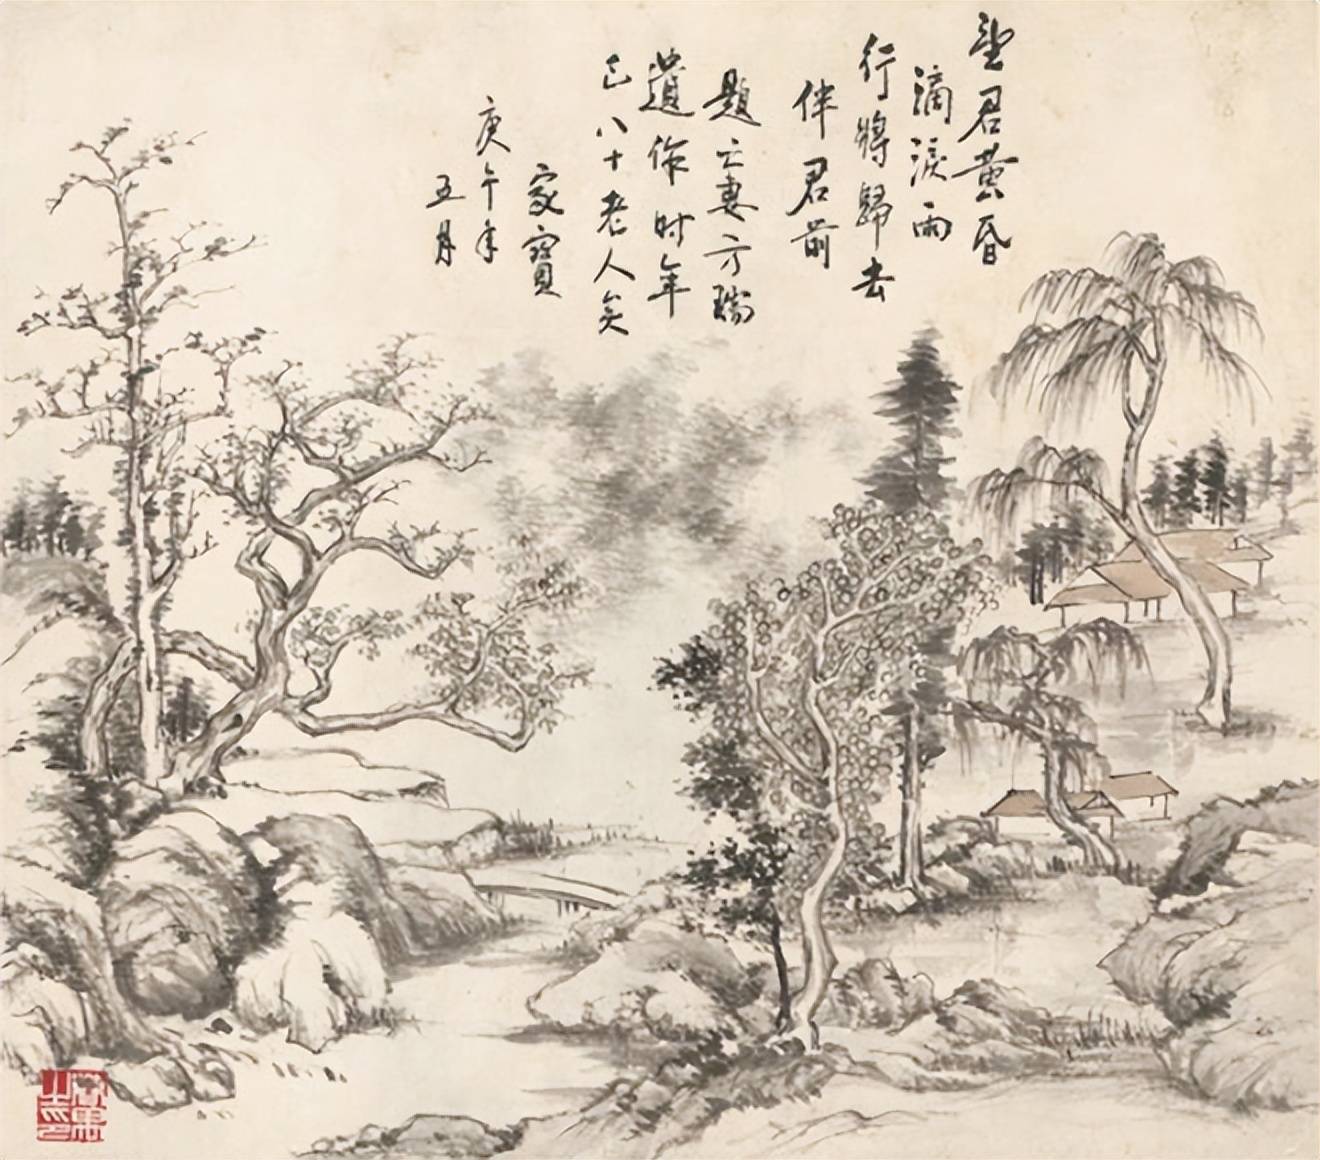 望君黄昏
滴淚雨
行將歸去
伴君前
題亡妻方瑞
遺作时年
已八十老人矣
家寶
庚午年
五月